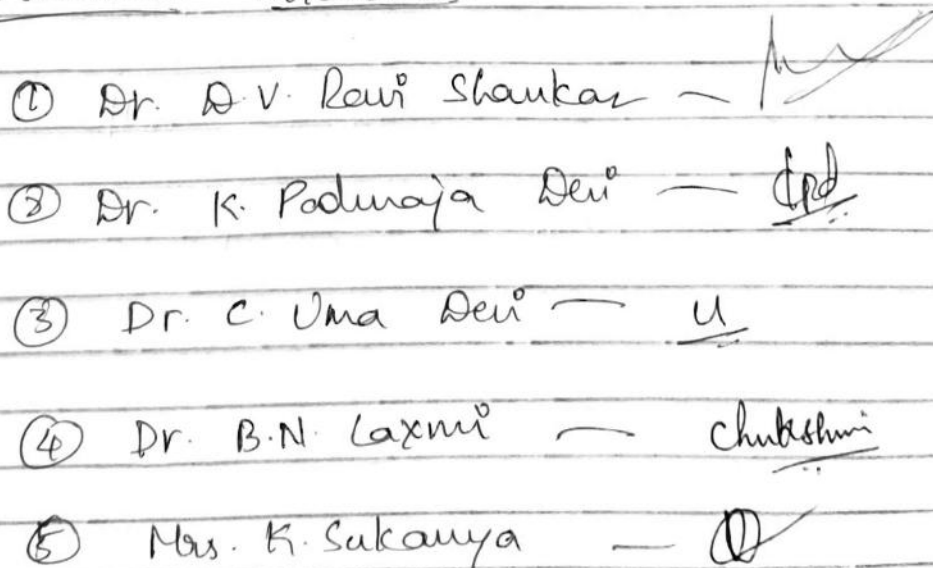 ① Dr. D.V. Ravi Shankar —
② Dr. K. Padmaja Devi —
③ Dr. C. Uma Devi — U
④ Dr. B.N. Laxmi —
⑤ Mrs. K. Sukanya —